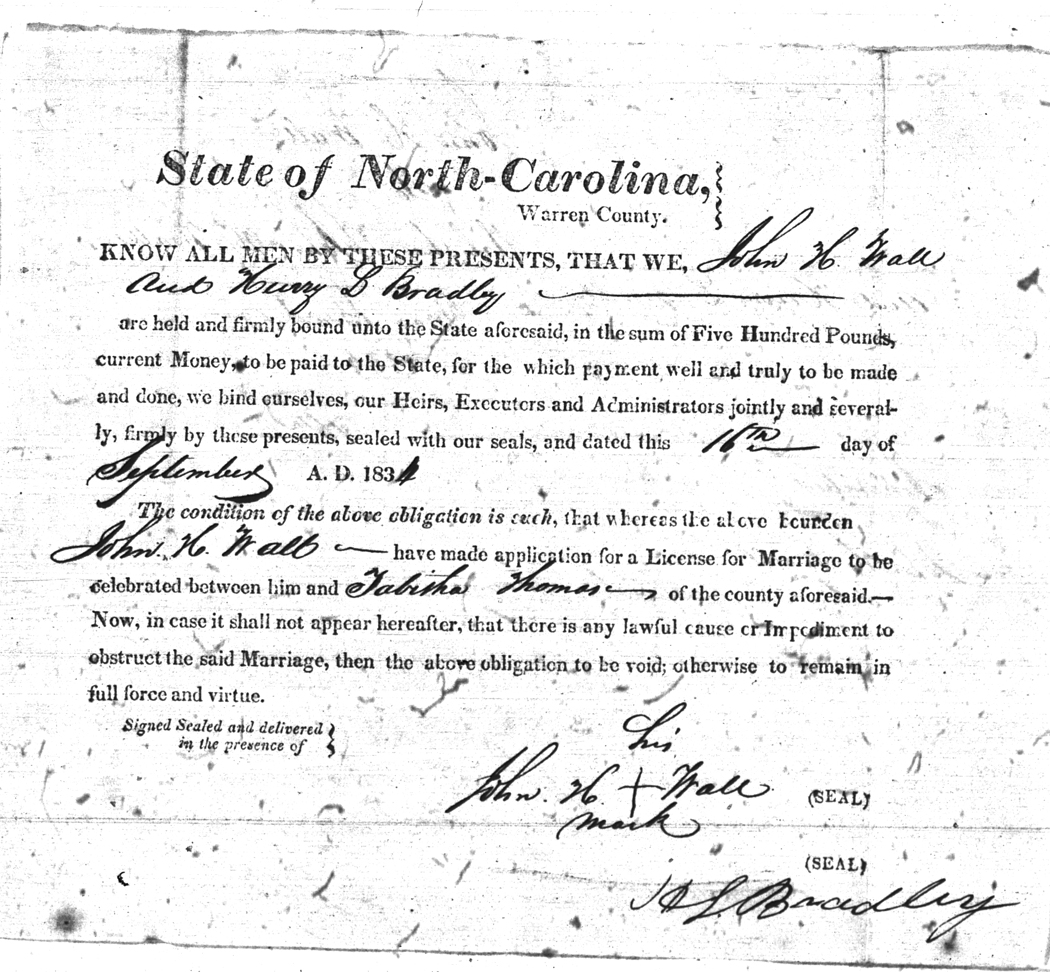 State of North-Carolina,
Warren County.
KNOW ALL MEN BY THESE PRESENTS, THAT WE, John H. Wall
and Henry L Bradley
are held and firmly bound unto the State aforesaid, in the sum of Five Hundred Pounds,
current Money, to be paid to the State, for the which payment well and truly to be made
and done, we bind ourselves, our Heirs, Executors and Administrators jointly and several-
ly, firmly by these presents, sealed with our seals, and dated this 16th day of
September A. D. 1834
The condition of the above obligation is such, that whereas the above bounden
John H. Wall have made application for a License for Marriage to be
celebrated between him and Tabitha Thomas of the county aforesaid.—
Now, in case it shall not appear hereafter, that there is any lawful cause or Impediment to
obstruct the said Marriage, then the above obligation to be void; otherwise to remain in
full force and virtue.
Signed Sealed and delivered
in the presence of
his
John. H. + Wall (SEAL)
mark
(SEAL)
H L Bradley